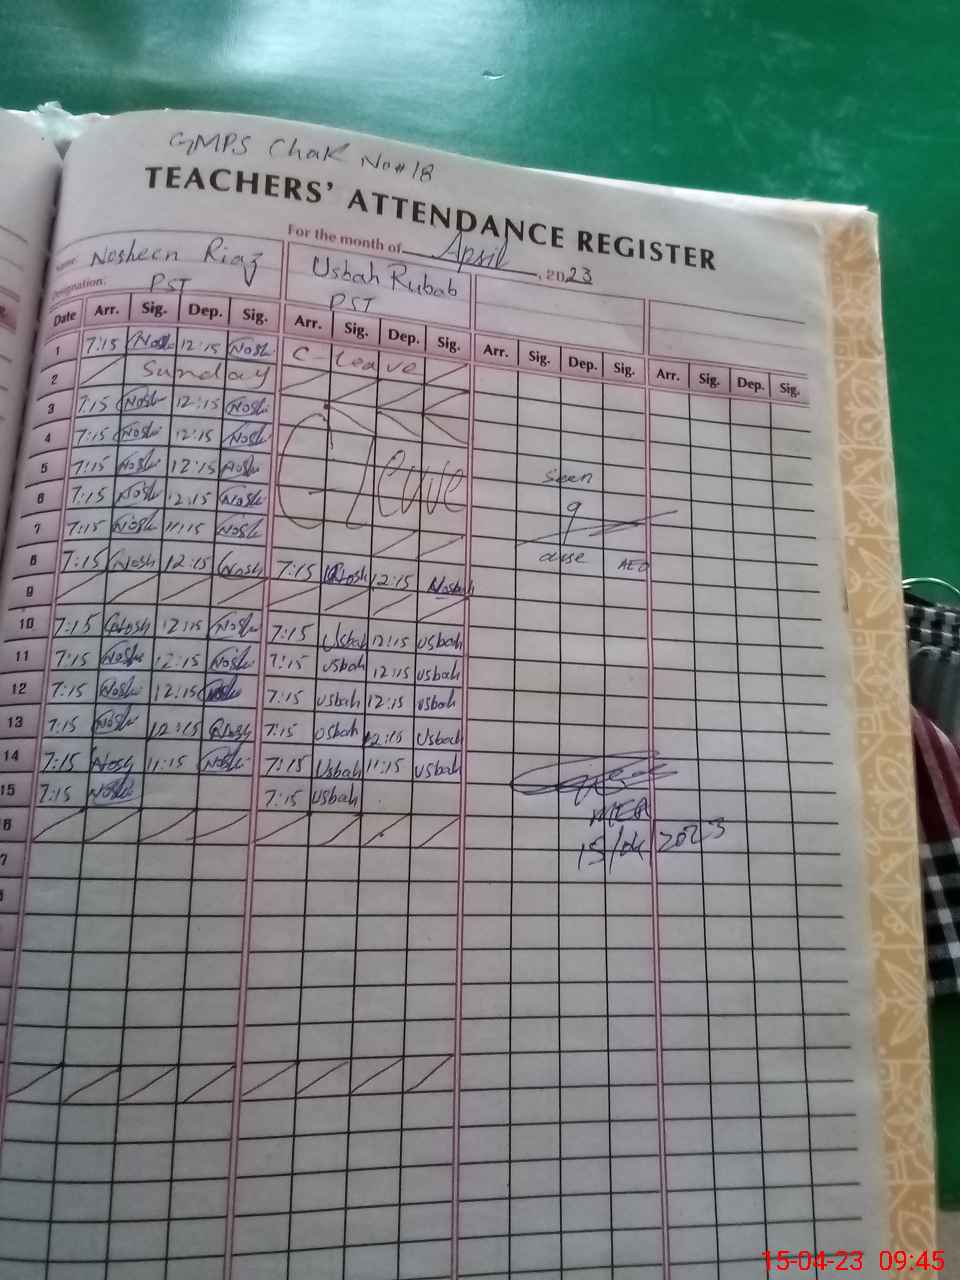 GMPS Chak No # 18
TEACHERS' ATTENDANCE REGISTER
For the month of April, 2023
Name: Nosheen Riaz Usbah Rubab
Designation: PST PST
Date Arr. Sig. Dep. Sig. Arr. Sig. Dep. Sig. Arr. Sig. Dep. Sig. Arr. Sig. Dep. Sig.
1 7:15 Nosh 12:15 Nosh C-leave
2 Sunday
3 7:15 Nosh 12:15 Nosh
4 7:15 Nosh 12:15 Nosh
5 7:15 Nosh 12:15 Nosh C leave
6 7:15 Nosh 12:15 Nosh Seen
7 7:15 Nosh 11:15 Nosh
8 7:15 Nosh 12:15 Nosh 7:15 Nosh 12:15 AEO
9
10 7:15 Nosh 12:15 Nosh 7:15 Usbah 12:15 usbah
11 7:15 Nosh 12:15 Nosh 7:15 usbah 12:15 usbah
12 7:15 Nosh 12:15 Nosh 7:15 usbah 12:15 usbah
13 7:15 Nosh 12:15 Nosh 7:15 usbah 12:15 Usbah
14 7:15 Nosh 11:15 Nosh 7:15 Usbah 11:15 usbah
15 7:15 Nosh 7:15 usbah
MEA
15/04/2023
15-04-23 09:45